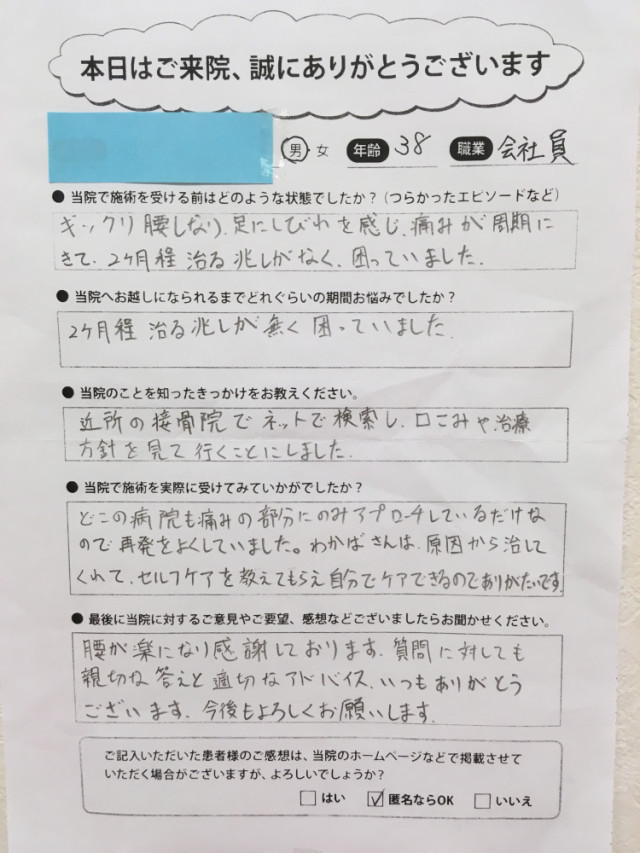 本日はご来院、誠にありがとうございます
男 女 年齢 38 職業 会社員
● 当院で施術を受ける前はどのような状態でしたか？(つらかったエピソードなど)
ギックリ腰しなり、足にしびれを感じ、痛みが周期に
きて、2ヶ月程 治る兆しがなく、困っていました。
● 当院へお越しになられるまでどれぐらいの期間お悩みでしたか？
2ヶ月程 治る兆しが無く 困っていました。
● 当院のことを知ったきっかけをお教えください。
近所の接骨院で ネットで検索し、口こみや治療
方針を見て 行くことにしました。
● 当院で施術を実際に受けてみていかがでしたか？
どこの病院も痛みの部分にのみアプローチしているだけな
ので再発をよくしていました。わかばさんは、原因から治して
くれて、セルフケアを教えてもらえ自分でケアできるのでありがたいです。
● 最後に当院に対するご意見やご要望、感想などございましたらお聞かせください。
腰が楽になり感謝しております。質問に対しても
親切な答えと適切なアドバイス、いつもありがとう
ございます。今後もよろしくお願いします。
ご記入いただいた患者様のご感想は、当院のホームページなどで掲載させて
いただく場合がございますが、よろしいでしょうか？
□ はい ☑ 匿名ならOK □ いいえ